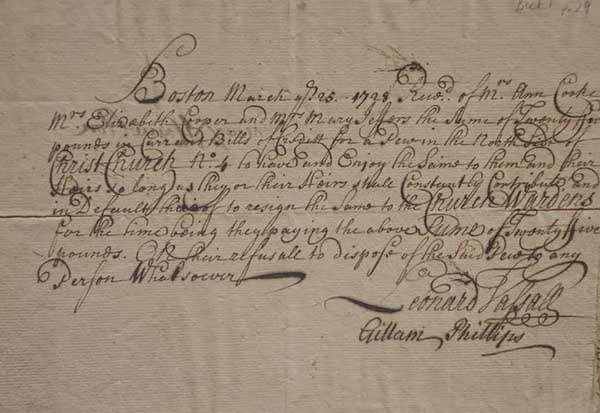 Book 1 p. 29
Boston March ye 25. 1728 Recd. of Mrs Ann Cocke
Mrs. Elizabeth Roper and Mrs Mary Jeffers the Sume of Twenty five
pounds in Currant Bills of Creditt for a Pew in the North Side of
Christ Church No. 4 to have and Enjoy the Same to them and their
Heirs so long as they or their Heirs shall Constantly Contribute, and
in Default thereof to resign the Same to the Church Wardens
for the time being they paying the above Sume of Twenty five
pounds. Or their refusall to dispose of the Said Pew to any
Person Whatsoever
Leonard Vassall
Gillam Phillips